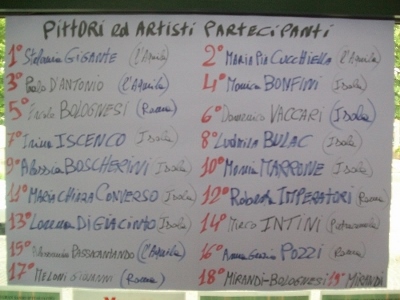 PITTORI ed ARTISTI PARTECIPANTI
1° Stefania GIGANTE (l'Aquila) 2° MARIA PIA CUCCHIELLA (l'Aquila)
3° Paolo D'ANTONIO (l'Aquila) 4° Monica BONFINI (Isola)
5° Paola BOLOGNESI (Roma) 6° Domenico VACCARI (Isola)
7° Irina ISCENCO Isola 8° Ludmila BULAC (Isola)
9° Alessia BOSCHERINI Isola 10° MARRONE (Isola)
11° MARIA CHIARA CONVERSO (Isola) 12° Roberta IMPERATORI (Roma)
13° Lorenzo DI GIACINTO Isola 14° Mirco INTINI
15° (l'Aquila) 16° Anna Grazia POZZI (Roma)
17° MELONI Giovanni (Roma) 18° MIRANDI-BOLOGNESI 19° MIRANDI